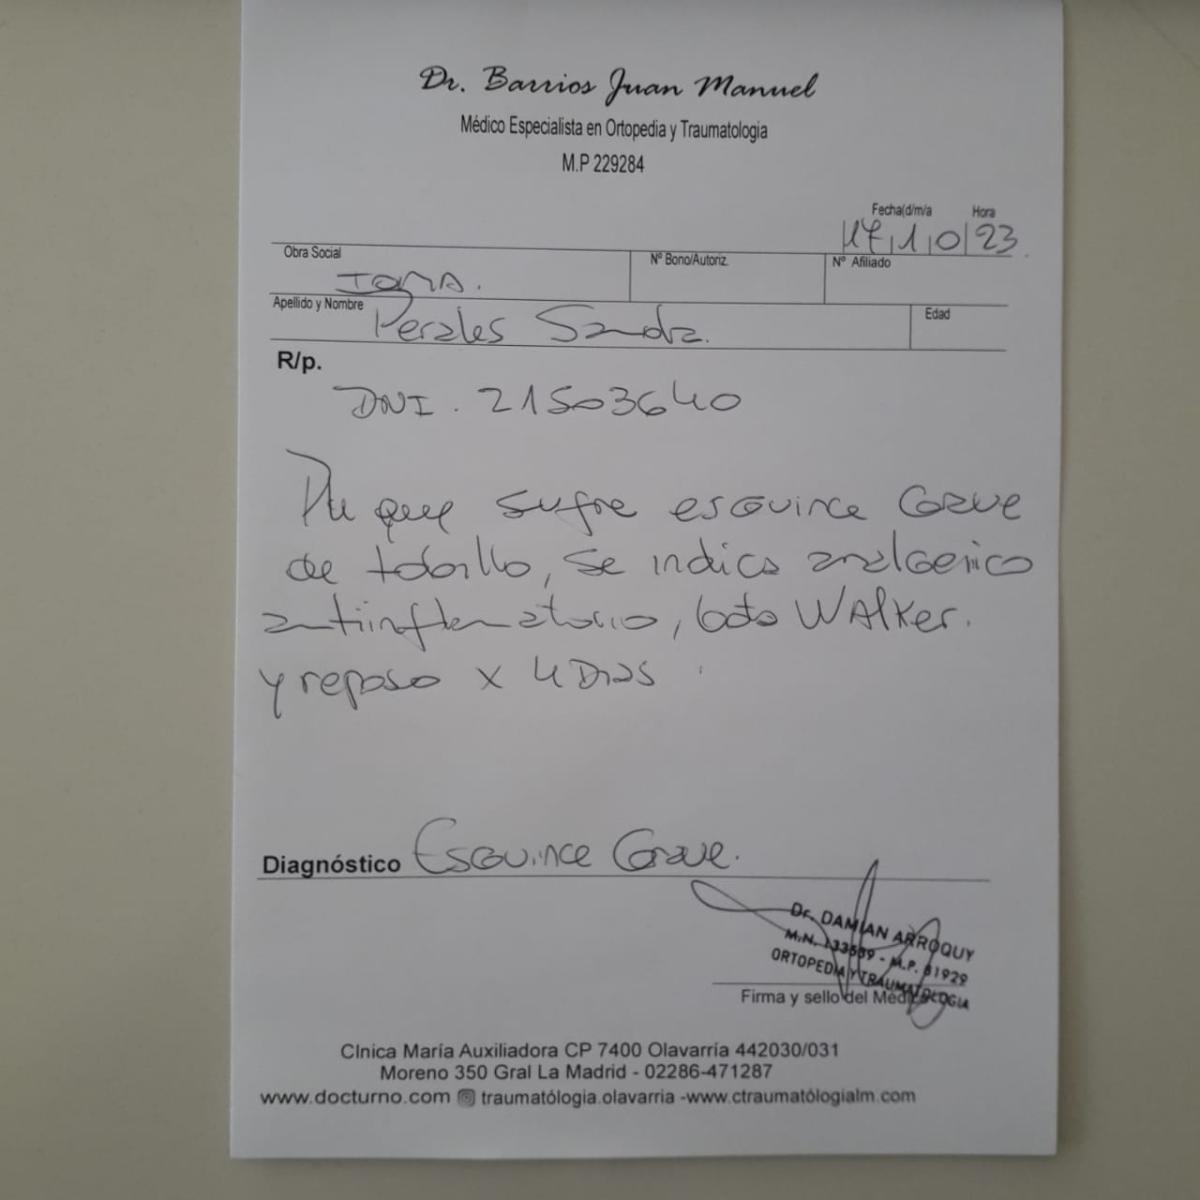 Dr. Barrios Juan Manuel
Médico Especialista en Ortopedia y Traumatologia
M.P 229284
Fecha(d/m/a Hora
17,1,0|23
Obra Social IOMA. Nº Bono/Autoriz. Nº Afiliado
Apellido y Nombre Perales Sandra. Edad
R/p.
DNI. 21503640
que sufre esguince Grave
de tobillo, se indica analgenico
antiinflamatorio, bota WAlker.
y reposo x 4 Dias
Diagnóstico Esguince Grave.
Dr. DAMIAN ARROQUY
M.N. 133589 - M.P. 81929
ORTOPEDIA Y TRAUMATOLOGIA
Firma y sello del Médico
Clnica María Auxiliadora CP 7400 Olavarría 442030/031
Moreno 350 Gral La Madrid - 02286-471287
www.docturno.com traumatólogia.olavarria -www.ctraumatólogialm.com